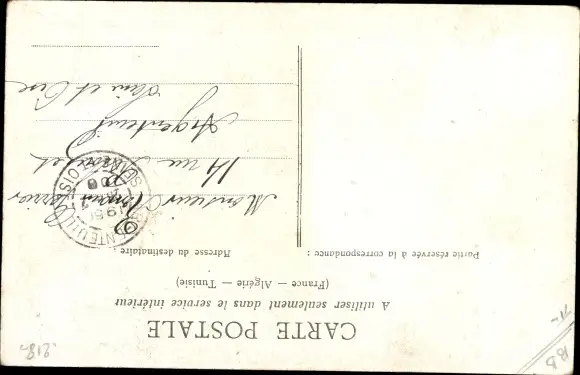 CARTE POSTALE
A utiliser seulement dans le service intérieur
(France — Algérie — Tunisie)
Partie réservée à la correspondance :
Adresse du destinataire :
Monsieur
14 rue
Argenteuil
Seine et Oise
218-
BB